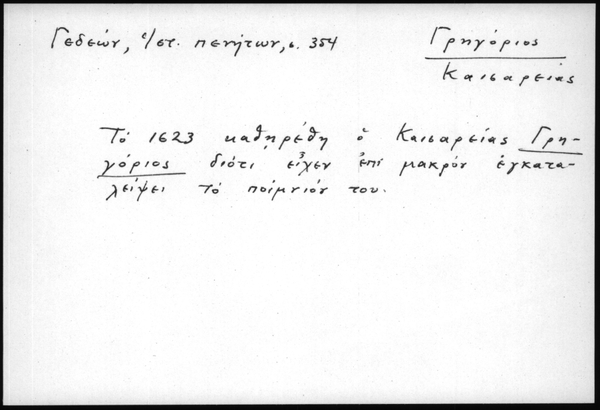 Γεδεών, ἱ/στ. πενήτων, σ. 354
Γρηγόριος
Καισαρείας
Τό 1623 καθηρέθη ὁ Καισαρείας Γρη-
γόριος διότι εἶχεν ἐπί μακρόν ἐγκατα-
λείψει τό ποίμνιόν του.